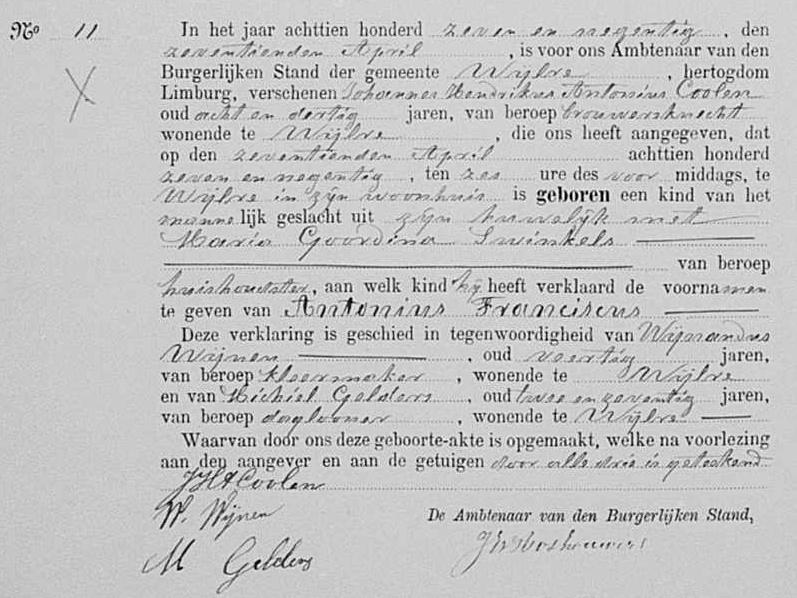 No 11 In het jaar achttien honderd zeven en negentig, den
zeventienden April, is voor ons Ambtenaar van den
Burgerlijken Stand der gemeente Wijlre, hertogdom
Limburg, verschenen Johannes Hendrikus Antonius Coolen
oud acht en dertig jaren, van beroep brouwersknecht
wonende te Wijlre, die ons heeft aangegeven, dat
op den zeventienden April achttien honderd
zeven en negentig, ten zes ure des voor middags, te
Wijlre in zijn woonhuis is geboren een kind van het
mannelijk geslacht uit zijn huwelijk met
Maria Goordina Swinkels
van beroep
huishoudster, aan welk kind hij heeft verklaard de voornamen
te geven van Antonius Franciscus
Deze verklaring is geschied in tegenwoordigheid van Wijnandus
Wijnen, oud veertig jaren,
van beroep kleermaker, wonende te Wijlre
en van Michiel Gelders, oud twee en zeventig jaren,
van beroep daglooner, wonende te Wijlre
Waarvan door ons deze geboorte-akte is opgemaakt, welke na voorlezing
aan den aangever en aan de getuigen door alle drie is geteekend
J H A Coolen
W. Wijnen
De Ambtenaar van den Burgerlijken Stand,
M Gelders